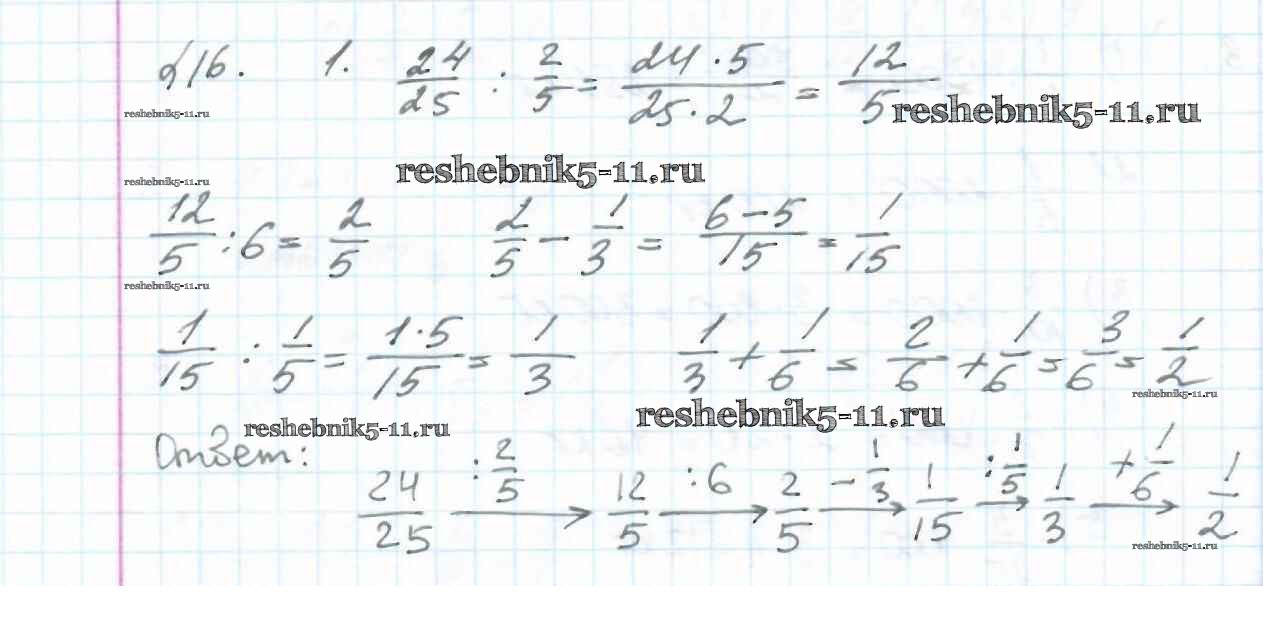 216. 1. 24/25 : 2/5 = 24·5/25·2 = 12/5 reshebnik5-11.ru
reshebnik5-11.ru
reshebnik5-11.ru
reshebnik5-11.ru
12/5 : 6 = 2/5 2/5 − 1/3 = 6−5/15 = 1/15
reshebnik5-11.ru
1/15 : 1/5 = 1·5/15 = 1/3 1/3 + 1/6 = 2/6 + 1/6 = 3/6 = 1/2
reshebnik5-11.ru
reshebnik5-11.ru
reshebnik5-11.ru
Ответ: 24/25 : 2/5 → 12/5 : 6 → 2/5 − 1/3 → 1/15 : 1/5 → 1/3 + 1/6 → 1/2
reshebnik5-11.ru